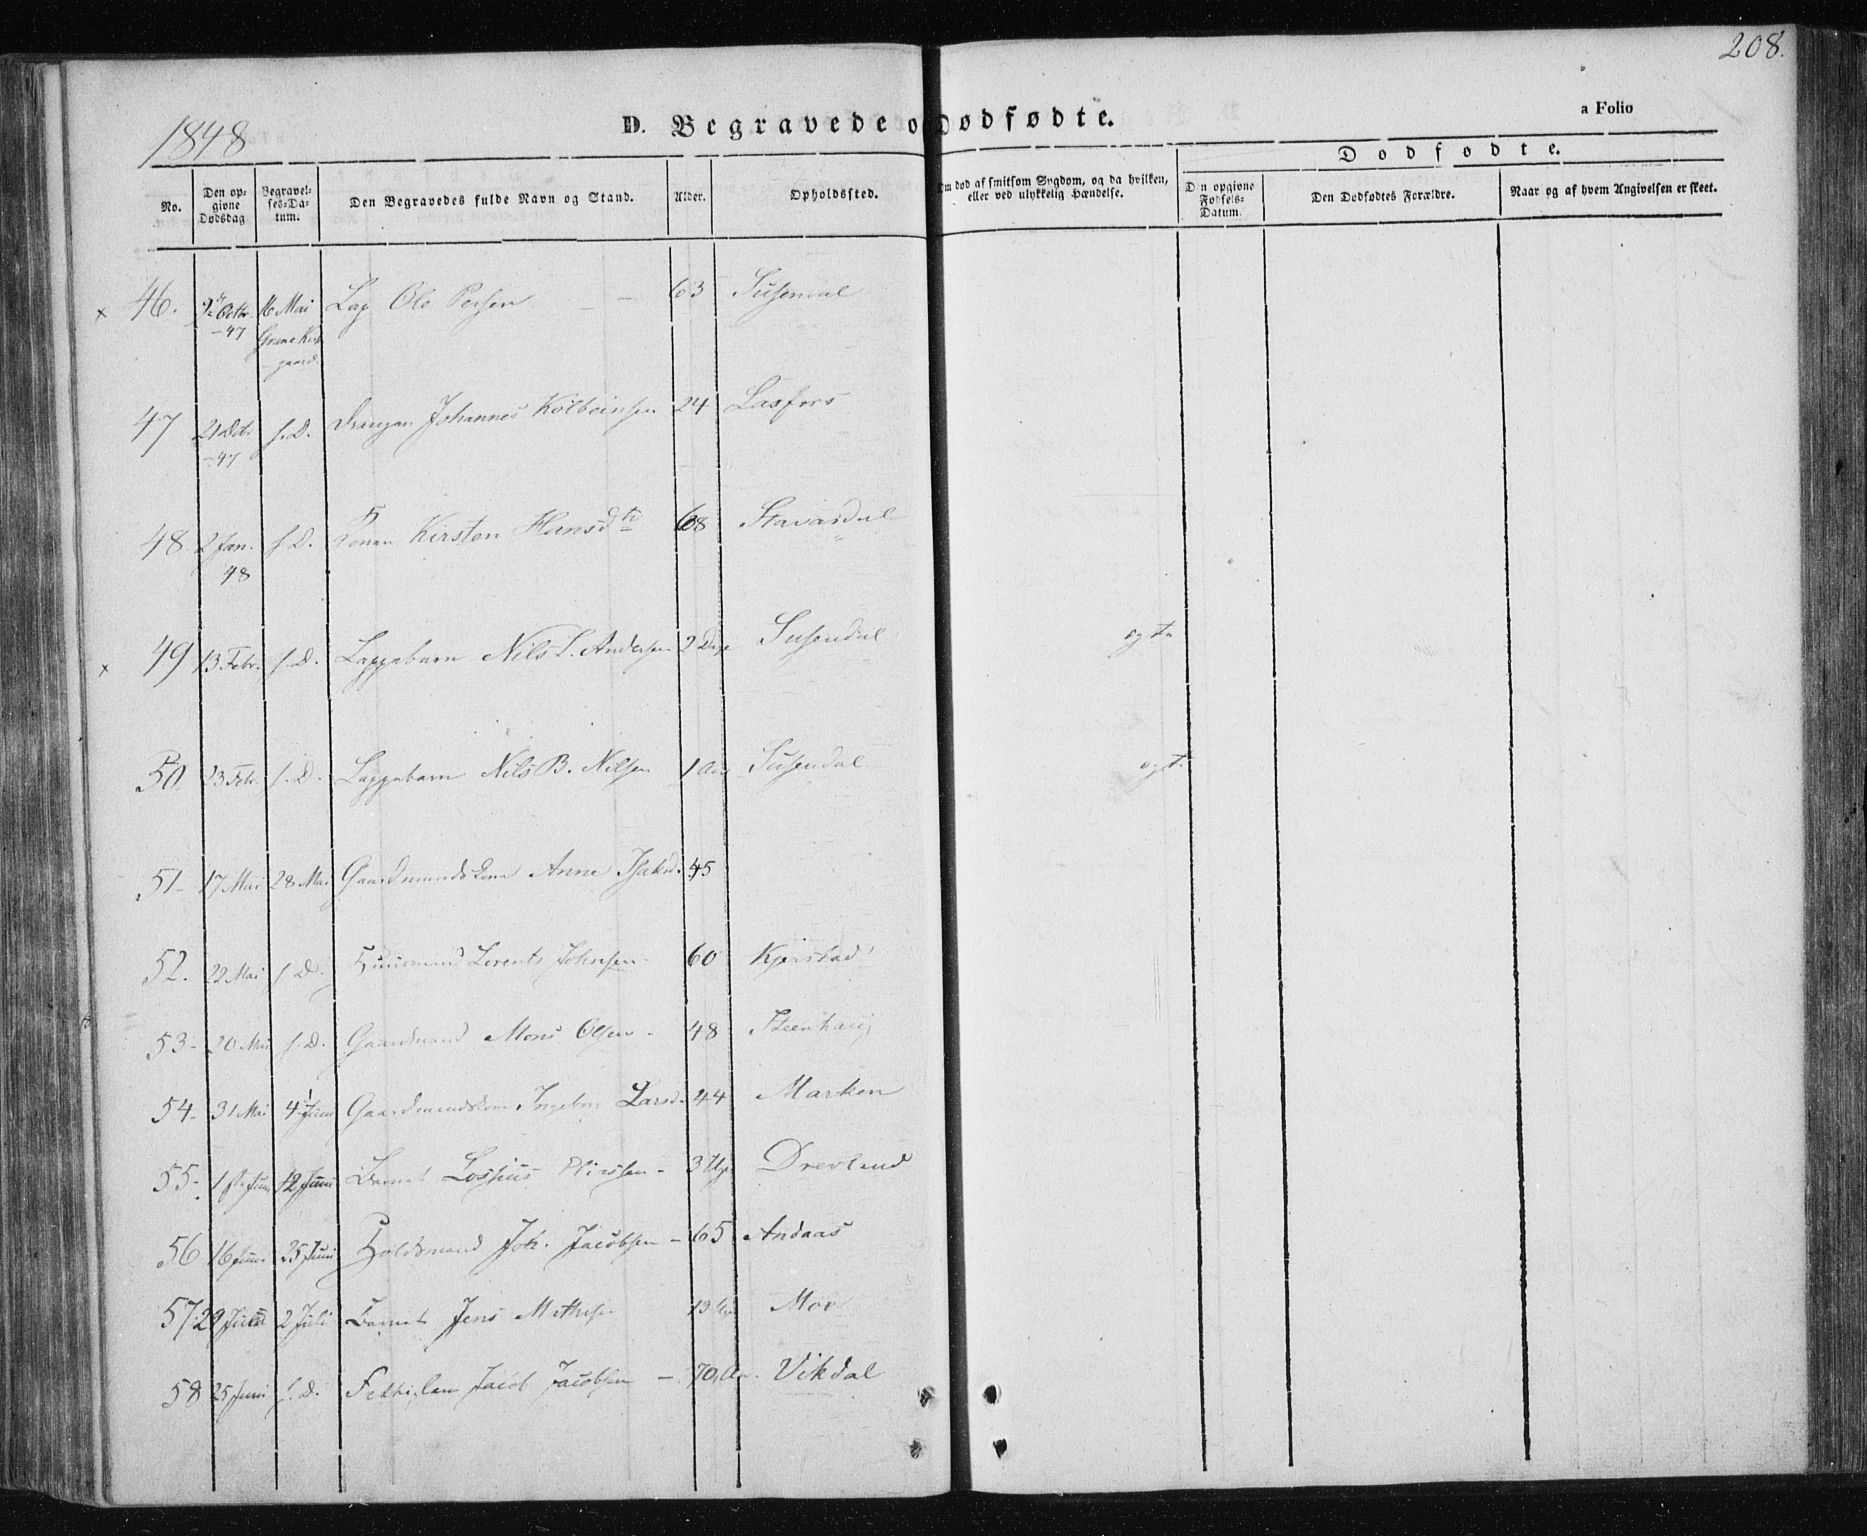 208.
1848
D. Begravede o dødfødte.
a Folio
Dødfødte.
No.
Den opgivne Dødsdag
Begravelses-Datum.
Den Begravedes fulde Navn og Stand.
Alder.
Opholdssted.
Om død af smitsom Sygdom, og da hvilken, eller ved ulykkelig Hændelse.
Den opgivne Fødsels-Datum.
Den Dødfødtes Forældre.
Naar og af hvem Angivelsen er skeet.
x 46. Octbr. 16 Mai Lap Ole Persen — 63 Susendal
-47 Grane Kirk
gaard.
47 21 Octr f. D. Drengen Johannes Kolbeinsen 24 Lasfors
-47
48. 2 Jan. f. D. Konen Kirsten Hansdtr 68 Stavasdal
48
x 49 13 Febr. f. D. Lappebarn Nils L. Andersen 2 Dage Susendal
50 23 Febr. f. D. Lappebarn Nils B. Nilsen 1 Aar Susendal
51- 17 Mai 28 Mai Gaardmandskone Anne Isaksd. 45
52. 22 Mai f. D. Huusmand Lorents Johnsen - 60 Kjerstad
53- 20 Mai f. D. Gaardmand Mons Olsen - 48 Steenhaug
54- 31 Mai 4 Juni Gaardmandskone Ingebor Larsd. 44 Marken
55- 1ste Juni 12 Juni Barnet Lossius - 3 Uger Drevland
56 16 Juni 25 Juni Holdsmand Joh. Jacobsen - 65 Andaas
57. 29 Juni 2 Juli Barnet Jens Mathisen 13 Moe
58 25 Juni f. D. Jacob Jacobsen - 70 Aar. Vikdal